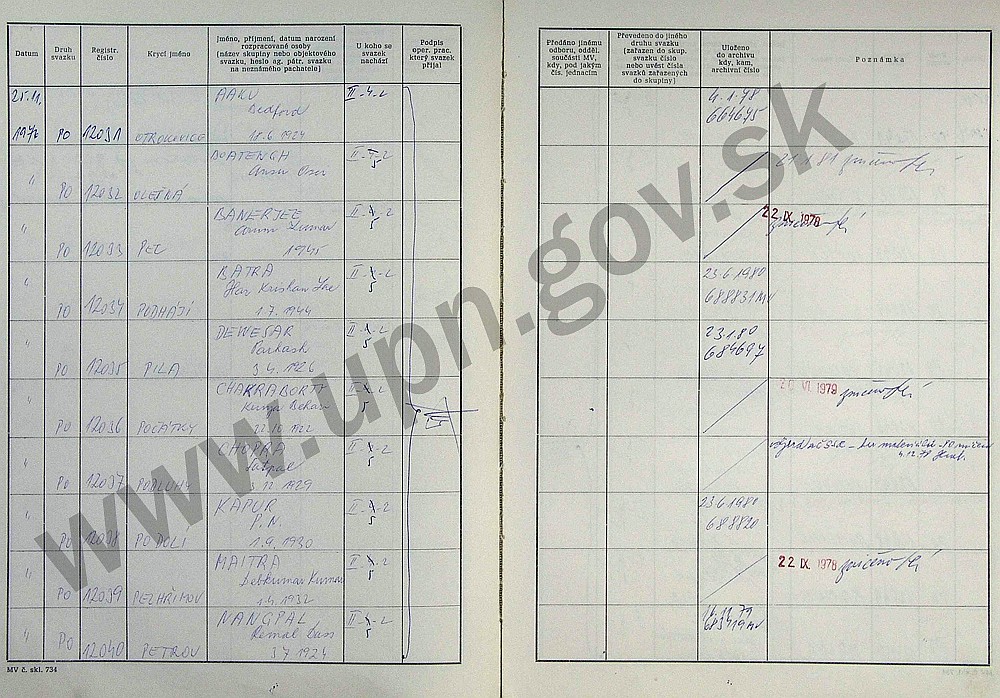 Datum
Druh svazku
Registr. číslo
Krycí jméno
Jméno, příjmení, datum narození
rozpracované osoby
(název skupiny nebo objektového
svazku, heslo ag. pátr. svazku
na neznámého pachatele)
U koho se
svazek
nachází
Podpis
oper. prac.
který svazek
přijal
Předáno jinému
odboru, odděl.
součásti MV,
kdy, pod jakým
čís. jednacím
Převedeno do jiného
druhu svazku
(zařazen do skup.
svazku číslo
nebo uvést čísla
svazků zařazených
do skupiny)
Uloženo
do archivu
kdy, kam,
archivní číslo
Poznámka
25.11. AAKU II-4-2 4.1.78
Bedford 664675
PO 12031 OTROKOVICE 18.6.1924
" BOATENGH II 2 21.1.81 zničeno
5
PO 12032 OLEŠNÁ
" BANERJEE II 2 22 IX. 1978 zničeno
5
PO 12033 PEC 1945
" BATRA II 2 23.6.1980
Har Krishan Lae 5 688831 MV
PO 12034 PODHÁJÍ 1.7.1944
" DEWESAR II 2 23.1.80
Parkash 5 684697
PO 12035 PILA 3.4.1926
" CHAKRABORTI II 2 VI. 1979 zničeno
Kunja Behari 5
PO 12036 POČÁTKY 22.10.1922
" CHOPRA II 2
Satpal 5 4.12.78
PO 12037 PODLUHY 3.12.1929
" KAPUR II 2 23.6.1980
P.N. 5 688820
PO 12038 PODOLÍ 1.9.1930
" MAITRA II 2 22 IX. 1978 zničeno
Debkumar Kumar 5
PO 12039 PELHŘIMOV 1.4.1932
" NANGPAL II 2
5
PO 12040 PETROV 3.7.1924
MV č. skl. 734
www.upn.gov.sk